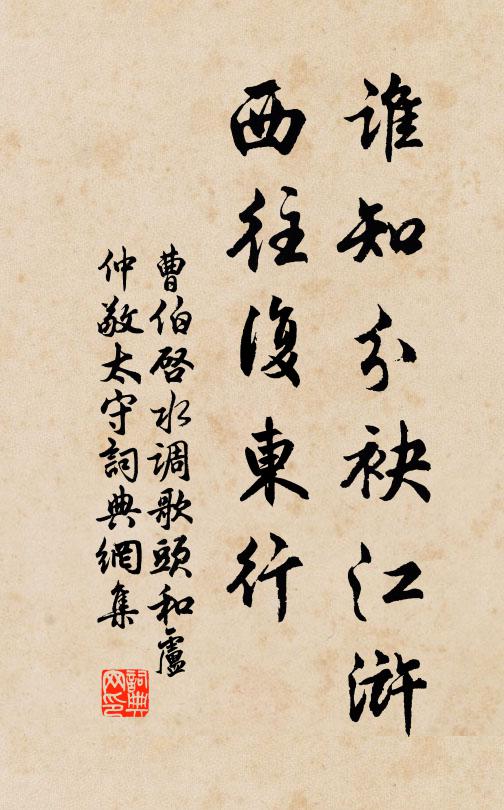 谁知分袂江浒
西往復東行
曹伯启水调歌頭和盧
仲敬太守詞典網集
詞典
网印